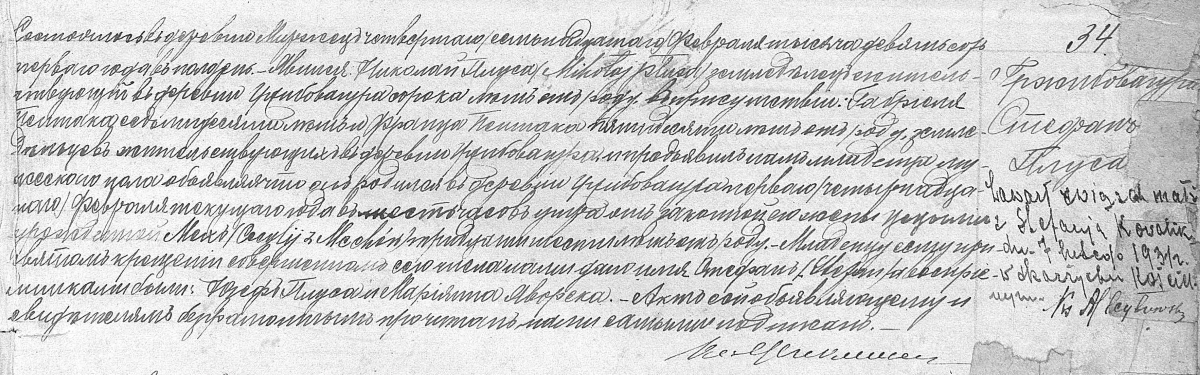 Состоялось въ деревнѣ четвертаго /семьнадцатаго/ Февраля тысяча девятьсотъ
перваго года въ полдень. – Явился Николай Плуса /Mikołaj Plusa/ земледѣлецъ жительствующій
въ деревнѣ сорока лѣтъ отъ роду, въ присутствіи: Габріеля
семидесяти лѣтъ и Франца пятидесяти лѣтъ отъ роду, земледѣльцевъ
жительствующихъ въ деревнѣ и предъявилъ намъ младенца мужескаго
пола объявляя что онъ родился въ деревнѣ перваго /четырнадцатаго/
Февраля текущаго года въ шесть часовъ утра отъ законной его жены
урожденной Мехъ /Cecylij z Mechów/ тридцати шести лѣтъ отъ роду. – Младенцу сему при
святомъ крещеніи совершенномъ сего числа нами дано имя Стефанъ /Stefan/ а воспріемниками
были: Іозефъ Плуса и Маріянна Яворска. – Актъ сей объявляющему и
свидѣтелямъ безграмотнымъ прочитанъ, нами самыми подписанъ. –
34
Стефанъ
Плуса
Zawarł związek małż
z Stefanją Kowalik
dn. 7 lutego 1931 r.
w
Ks